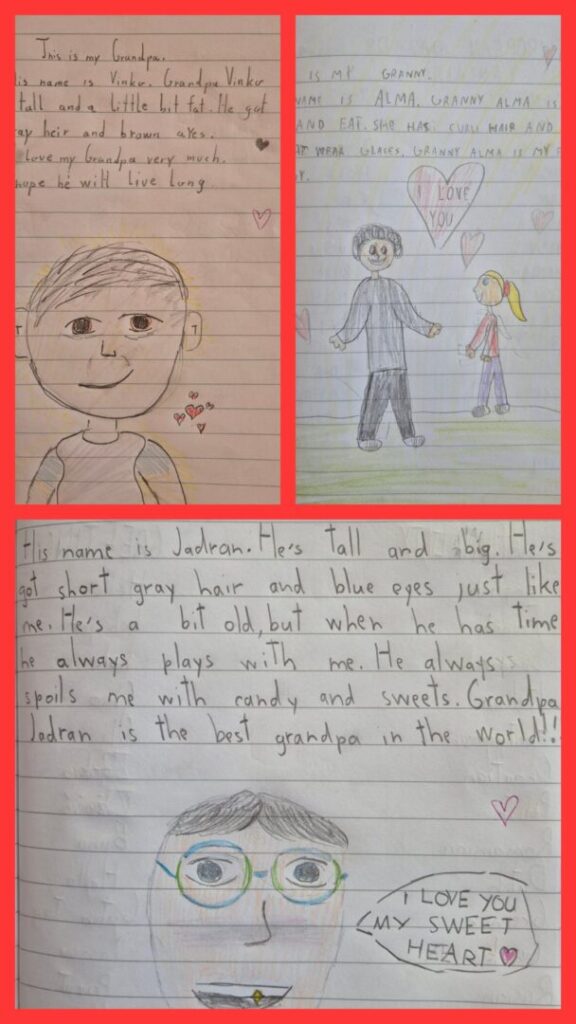 This is my Grandpa.
is name is Vinko. Grandpa Vinko
tall and a little bit fat. He got
ay heir and brown ayes.
love my Grandpa very much.
hope he will live long.
IS MY GRANNY.
NAME IS ALMA. GRANNY ALMA IS
AND EAT. SHE HAS CURLI HAIR AND
AT WEAR GLACES. GRANNY ALMA IS MY
I LOVE
YOU
His name is Jadran. He's tall and big. He's
got short gray hair and blue eyes just like
me. He's a bit old, but when he has time
he always plays with me. He always
spoils me with candy and sweets. Grandpa
Jadran is the best grandpa in the world!!
I LOVE YOU
MY SWEET
HEART